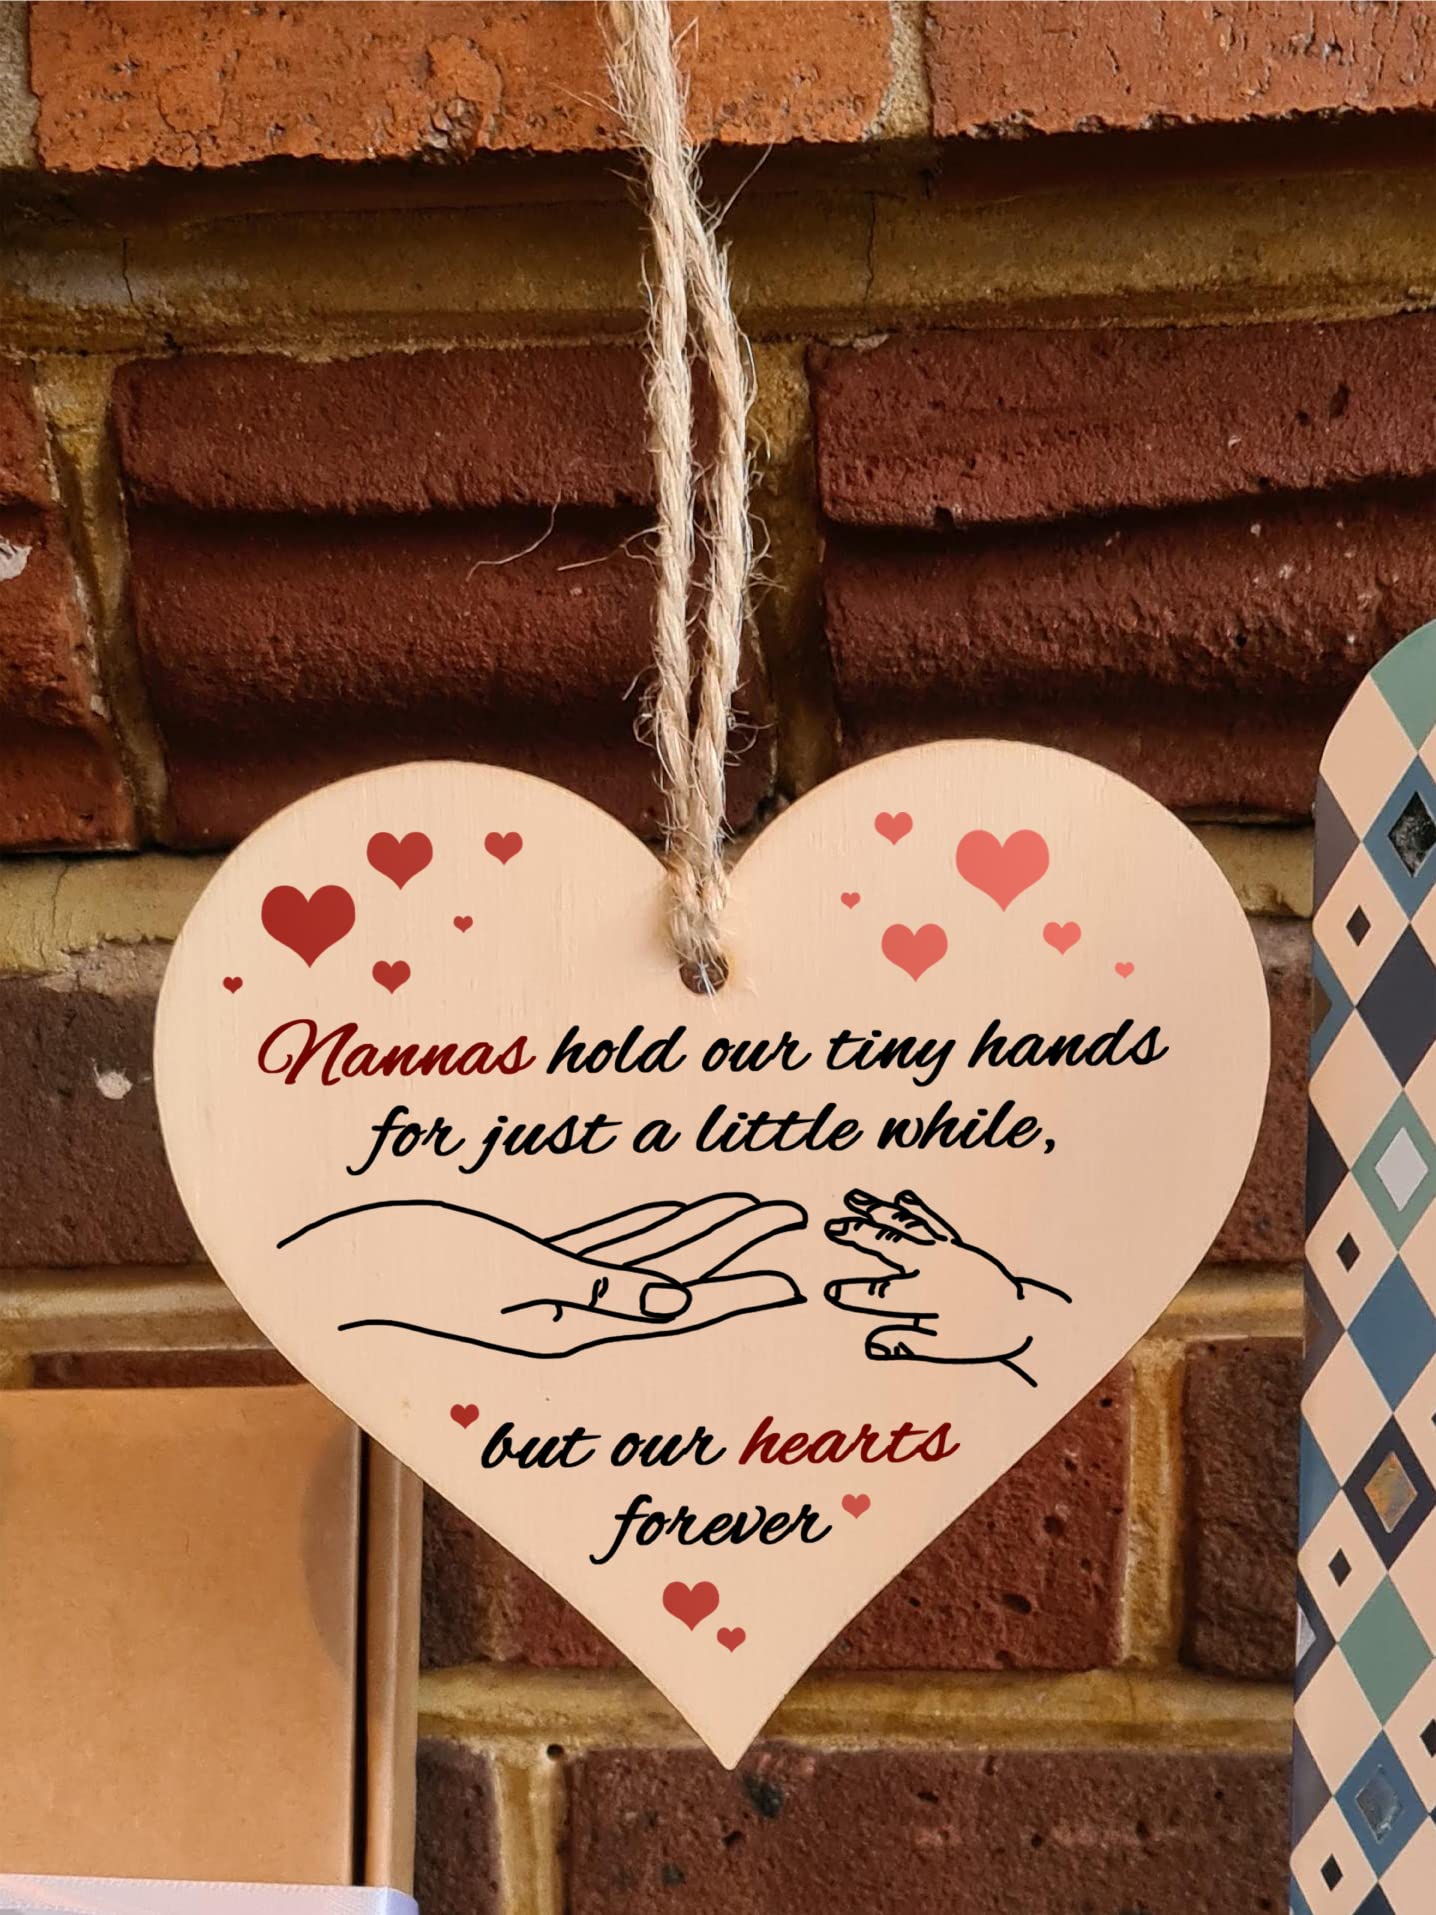 Nannas hold our tiny hands
for just a little while,
but our hearts
forever